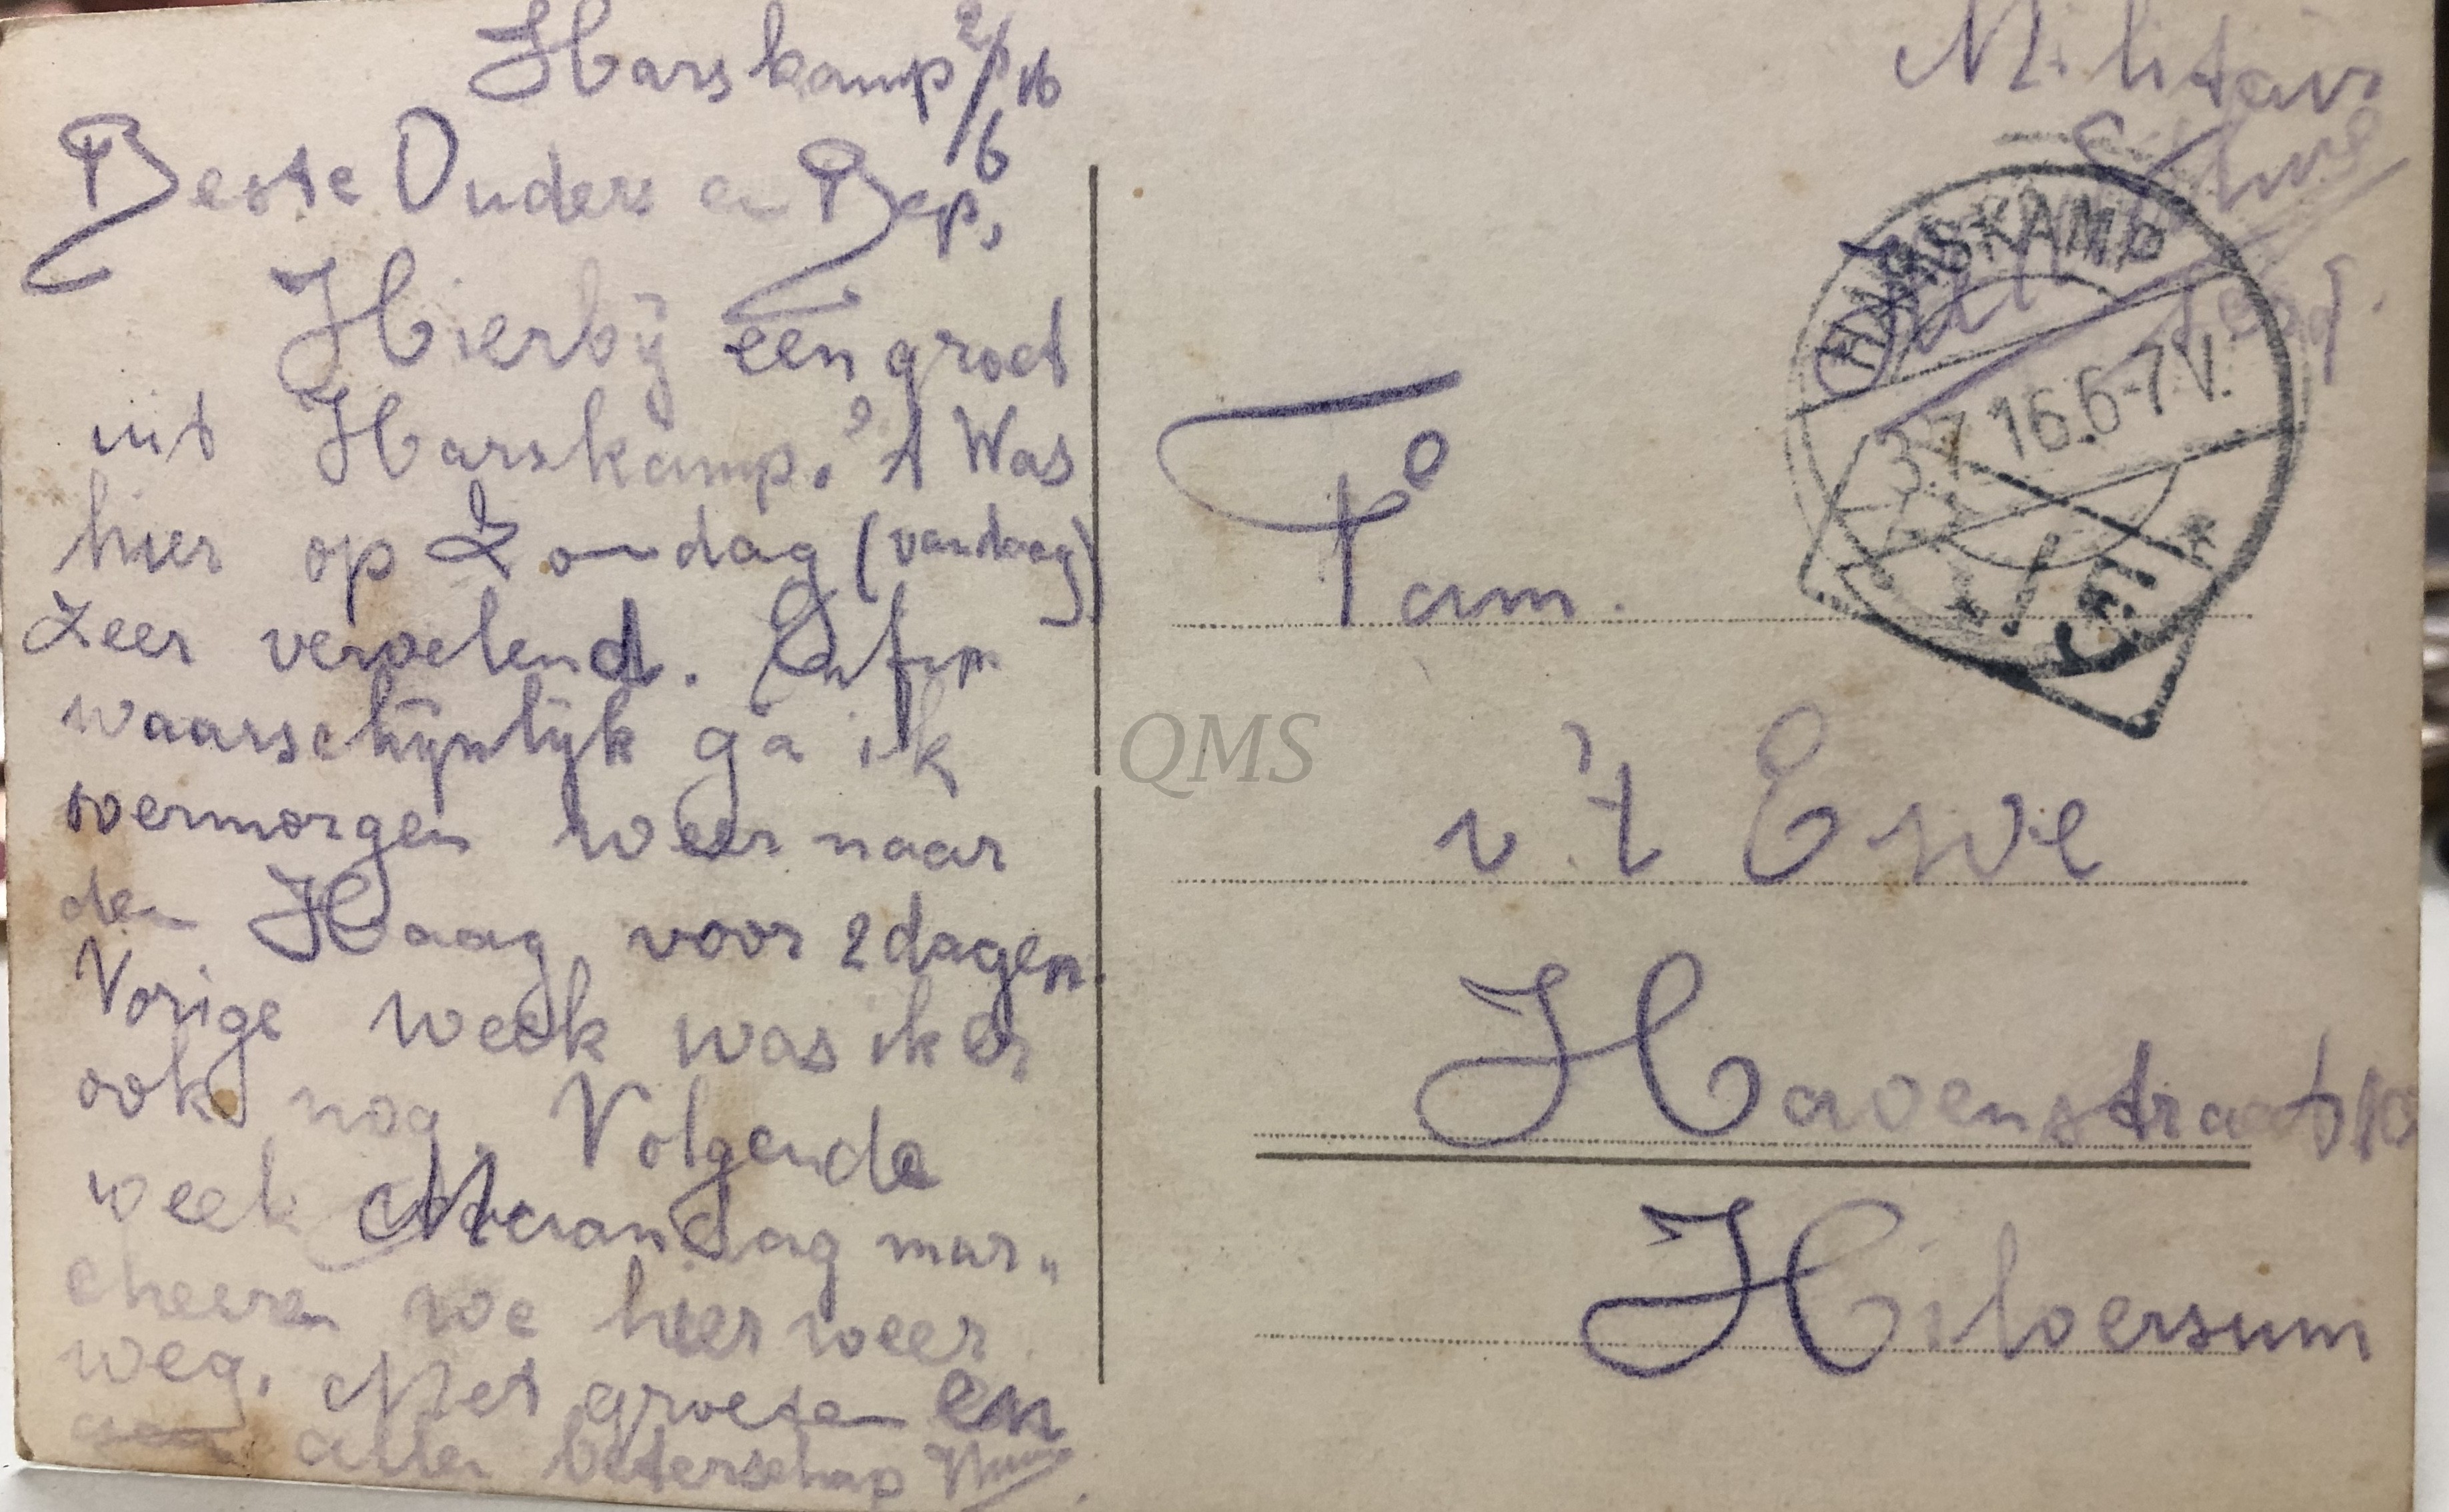 Harskamp 2/6 16
Beste Ouders en Bep,
Hierbij een groet
uit Harskamp. 't Was
hier op Zondag (vandaag)
zeer vervelend. Enfin
waarschijnlijk ga ik
overmorgen weer naar
den Haag voor 2 dagen.
Vorige week was ik er
ook nog. Volgende
week Maandag mar„
cheeren we hier weer
weg. Met groeten en
aller beterschap
Militair
HARSKAMP
3.7.16.6-7V.
Fam.
v 't Ewe
Havenstraat 10
Hilversum
QMS